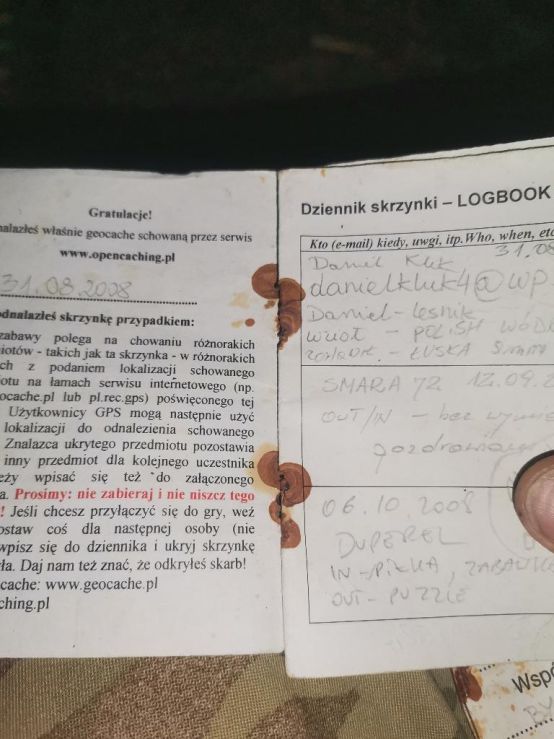 Gratulacje!
nalazłeś właśnie geocache schowaną przez serwis
www.opencaching.pl
31.08.2008
odnalazłeś skrzynkę przypadkiem:
zabawy polega na chowaniu różnorakich
miotów - takich jak ta skrzynka - w różnorakich
ch z podaniem lokalizacji schowanego
iotu na łamach serwisu internetowego (np.
ocache.pl lub pl.rec.gps) poświęconego tej
Użytkownicy GPS mogą następnie użyć
lokalizacji do odnalezienia schowanego
Znalazca ukrytego przedmiotu pozostawia
inny przedmiot dla kolejnego uczestnika
eży wpisać się też do załączonego
a. Prosimy: nie zabieraj i nie niszcz tego
! Jeśli chcesz przyłączyć się do gry, weź
ostaw coś dla następnej osoby (nie
wpisz się do dziennika i ukryj skrzynkę
yła. Daj nam też znać, że odkryłeś skarb!
ocache: www.geocache.pl
ching.pl
Dziennik skrzynki – LOGBOOK
Kto (e-mail) kiedy, uwagi, itp. Who, when, etc
31.08
Daniel Kluk
danielkluk4@wp
Daniel - leśnik
- POLISH WÓD
- ŁUSKA
SMARA 72 12.09.2
OUT/IN - bez
pozdrawiam
06.10.2008
DUPEREL
IN - PIŁKA, ZABAWK
OUT - PUZZLE
Wspó